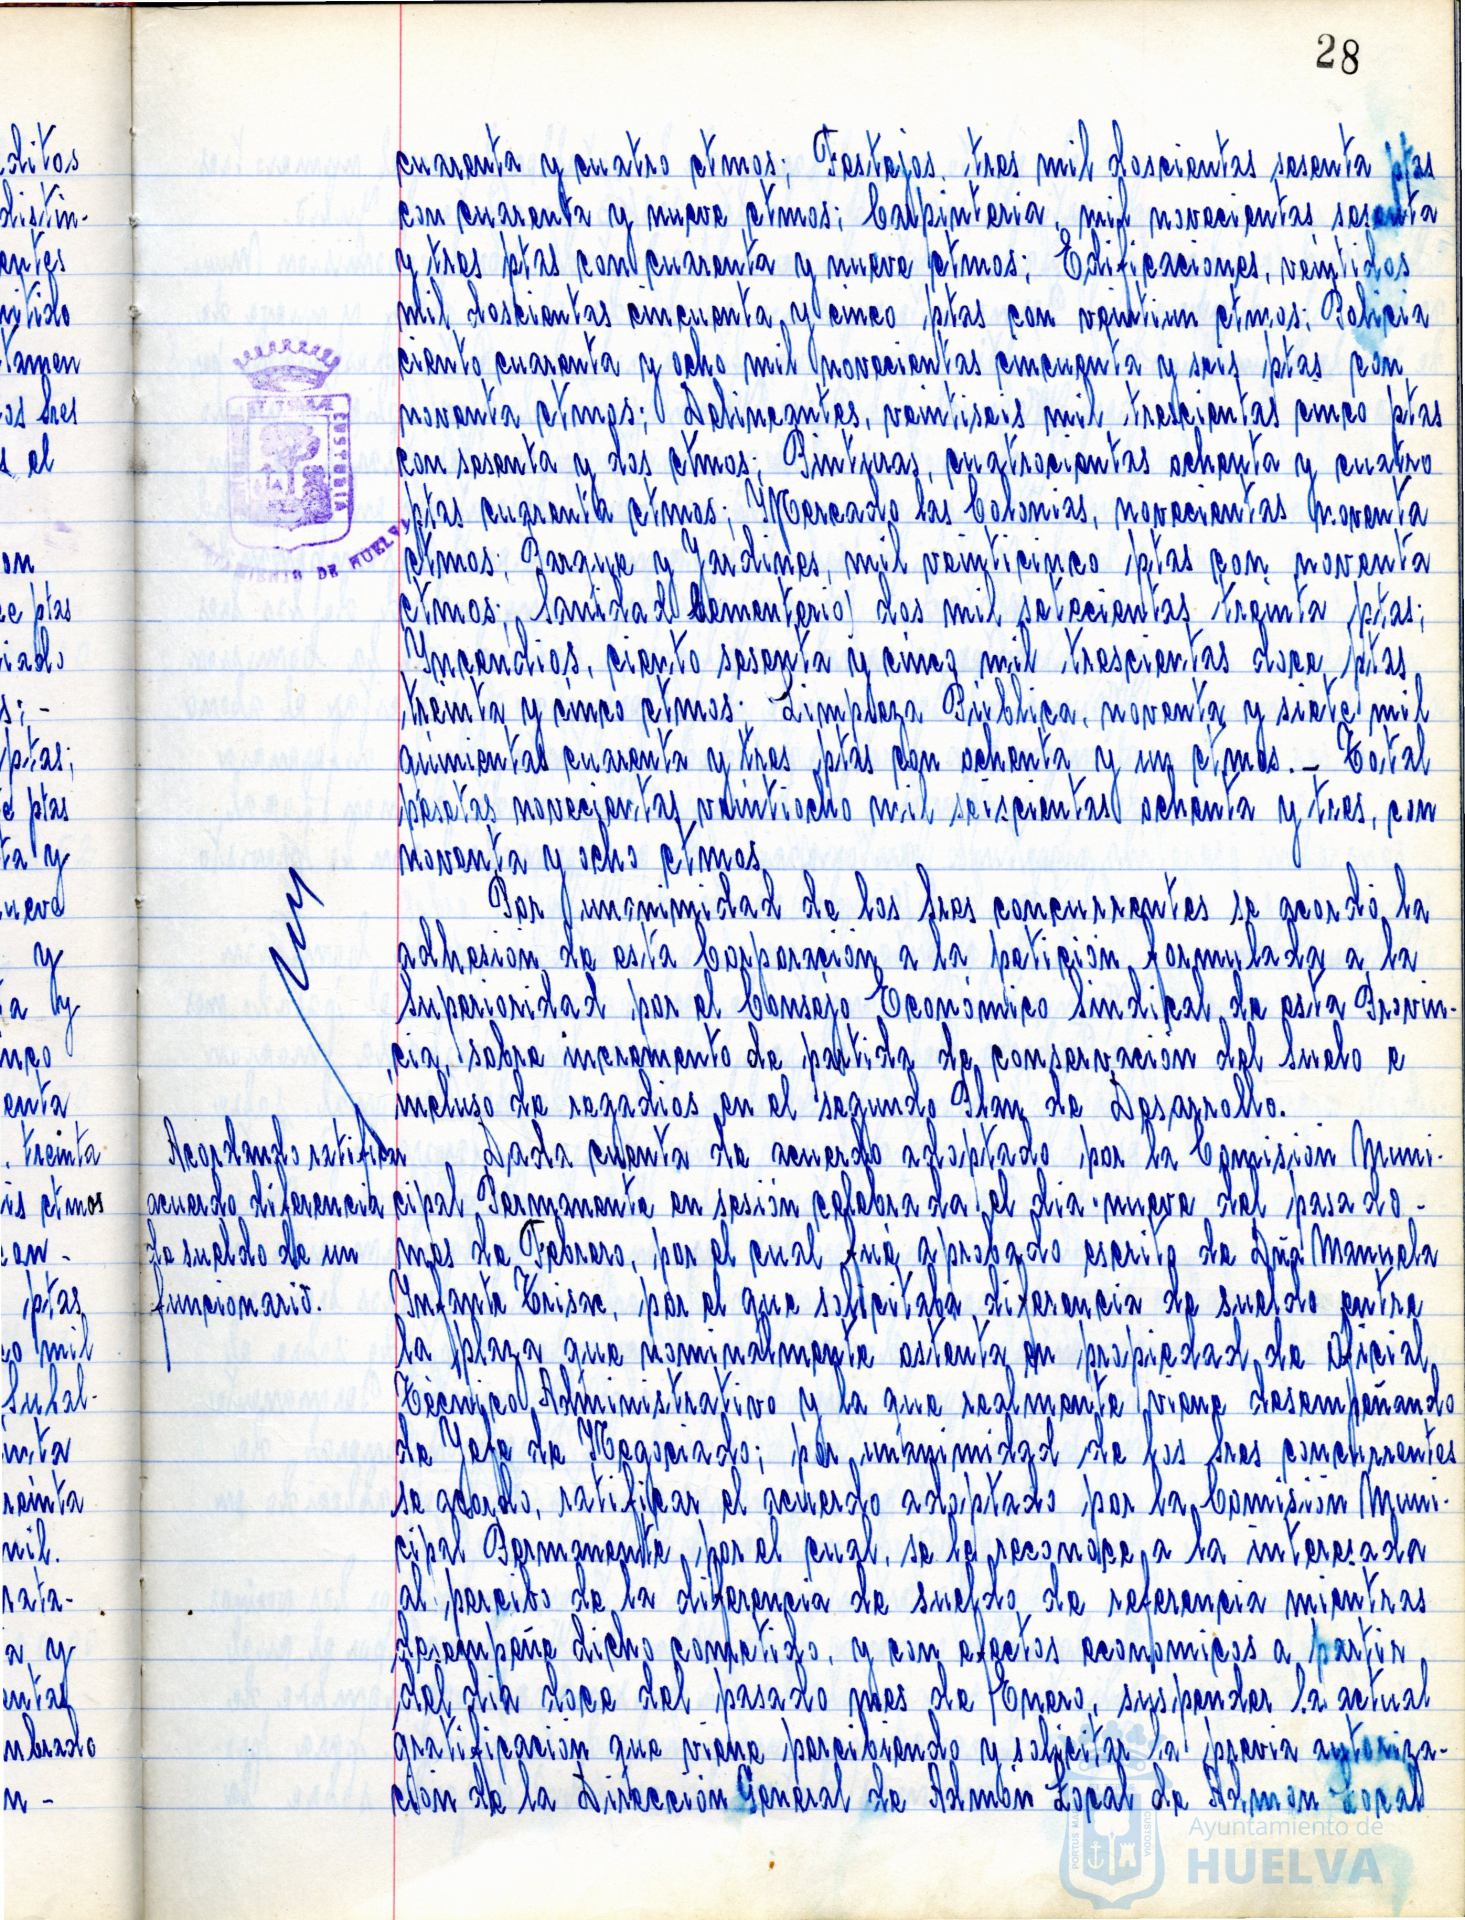 28
cuarenta y cuatro ctmos; Festejos, tres mil doscientas sesenta ptas
con cuarenta y nueve ctmos; Carpinteria, mil novecientas sesenta
y tres ptas con cuarenta y nueve ctmos; Edificaciones, veintidos
mil doscientas cincuenta y cinco ptas con veintiun ctmos; Policia
ciento cuarenta y ocho mil novecientas cincuenta y seis ptas con
noventa ctmos; Delineantes, veintiseis mil trescientas cinco ptas
con sesenta y dos ctmos; Pinturas, cuatrocientas ochenta y cuatro
ptas cuarenta ctmos; Mercado las Colonias, novecientas noventa
ctmos; Parque y Jardines, mil veinticinco ptas con noventa
ctmos; Sanidad Cementerio) dos mil setecientas treinta ptas;
Yncendios, ciento sesenta y cinco mil trescientas doce ptas
treinta y cinco ctmos; Limpieza Pública, noventa y siete mil
quinientas cuarenta y tres ptas con ochenta y un ctmos.- Total
pesetas novecientas veintiocho mil seiscientas ochenta y tres, con
noventa y ocho ctmos
Por unanimidad de los Sres concurrentes se acordó la
adhesión de esta Corporación a la petición formulada a la
Superioridad por el Consejo Económico Sindical de esta Provin-
cia, sobre incremento de partida de conservación del Suelo e
incluso de regadios en el segundo Plan de Desarrollo.
Acordando ratificar
acuerdo diferencia
de sueldo de un
funcionario.
Dada cuenta de acuerdo adoptado por la Comisión Muni-
cipal Permanente en sesión celebrada el dia nueve del pasado-
mes de Febrero, por el cual fué aprobado escrito de Dña Manuela
Infante Trisac, por el que solicitaba diferencia de sueldo entre
la plaza que nominalmente ostenta en propiedad de Oficial
Técnico Administrativo y la que realmente viene desempeñando
de Jefe de Negociado; por unanimidad de los Sres concurrentes
se acordó, ratificar el acuerdo adoptado por la Comisión Muni-
cipal Permanente por el cual, se le reconoce a la interesada
al percibo de la diferencia de sueldo de referencia mientras
desempeñe dicho cometido, y con efectos economicos a partir
del dia doce del pasado mes de Enero, suspender la actual
gratificación que viene percibiendo y solicitar la previa autoriza-
ción de la Dirección General de Admón Local de Admon Local
Ayuntamiento de
HUELVA